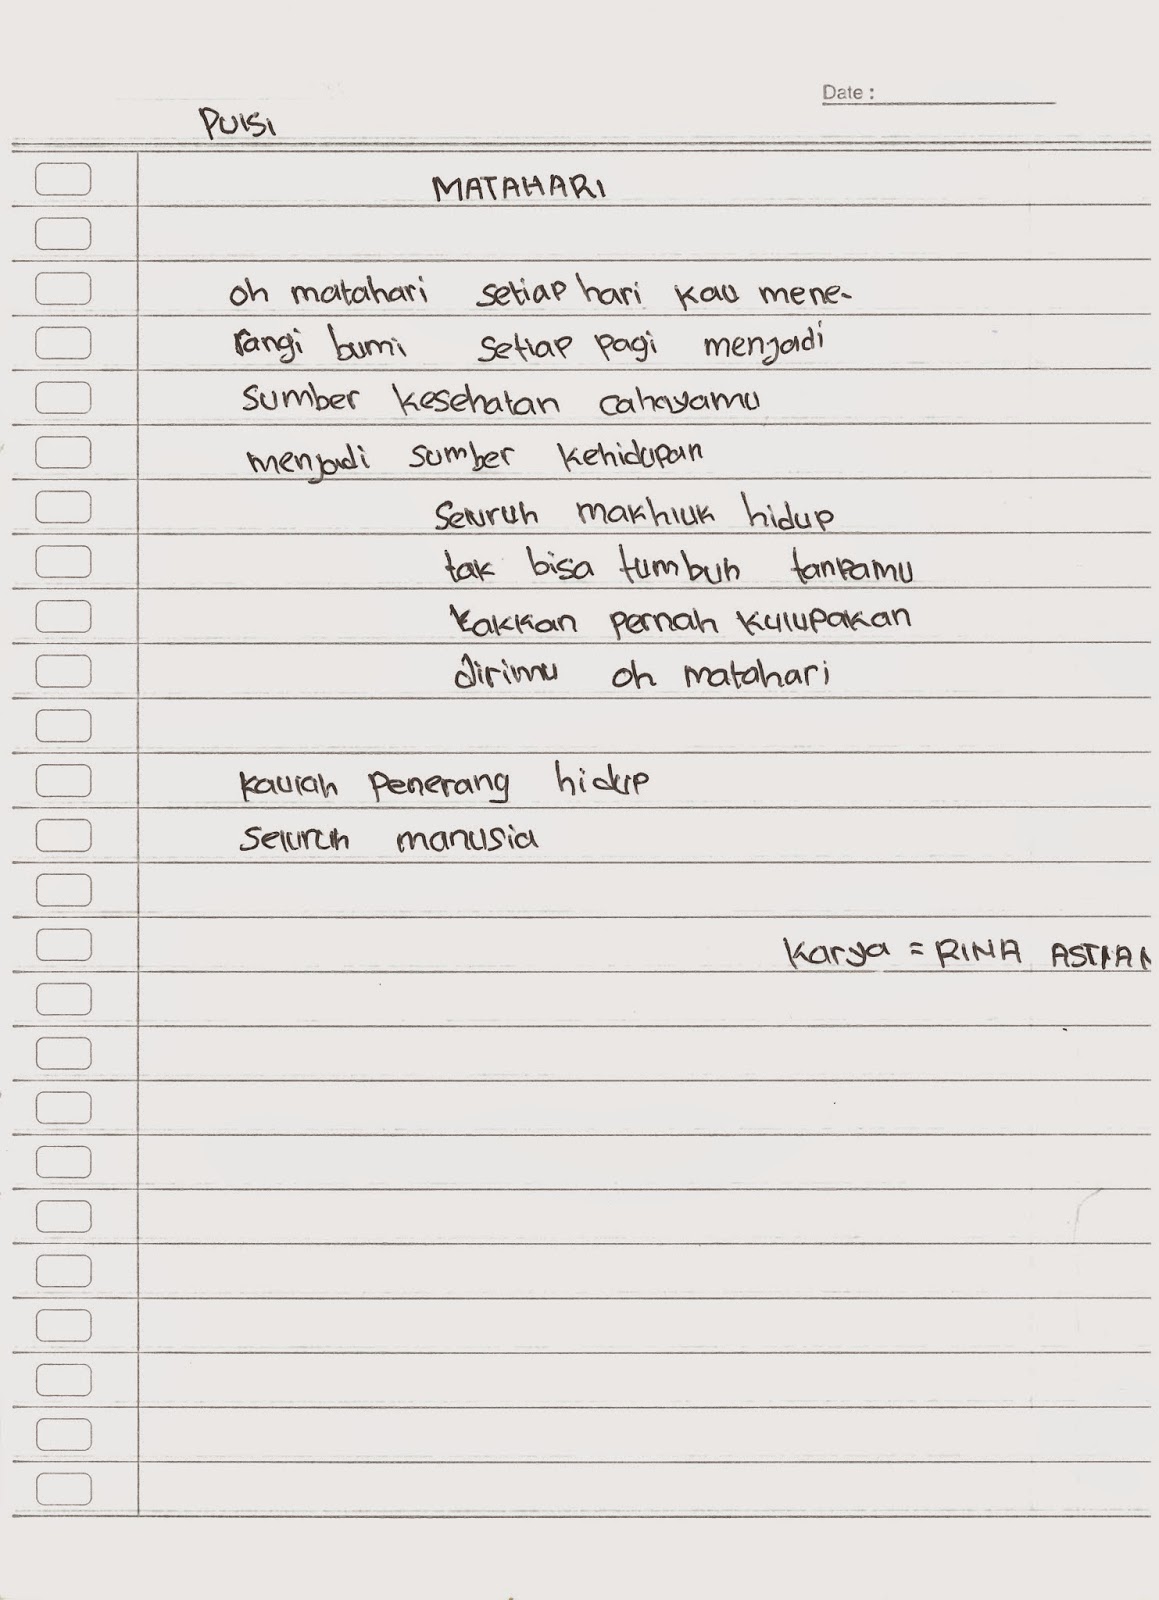 Date :
Puisi
MATAHARI
oh matahari setiap hari kau mene-
rangi bumi setiap pagi menjadi
sumber kesehatan cahayamu
menjadi sumber kehidupan
seluruh makhluk hidup
tak bisa tumbuh tanpamu
takkan pernah kulupakan
dirimu oh matahari
kaulah penerang hidup
seluruh manusia
Karya = RINA